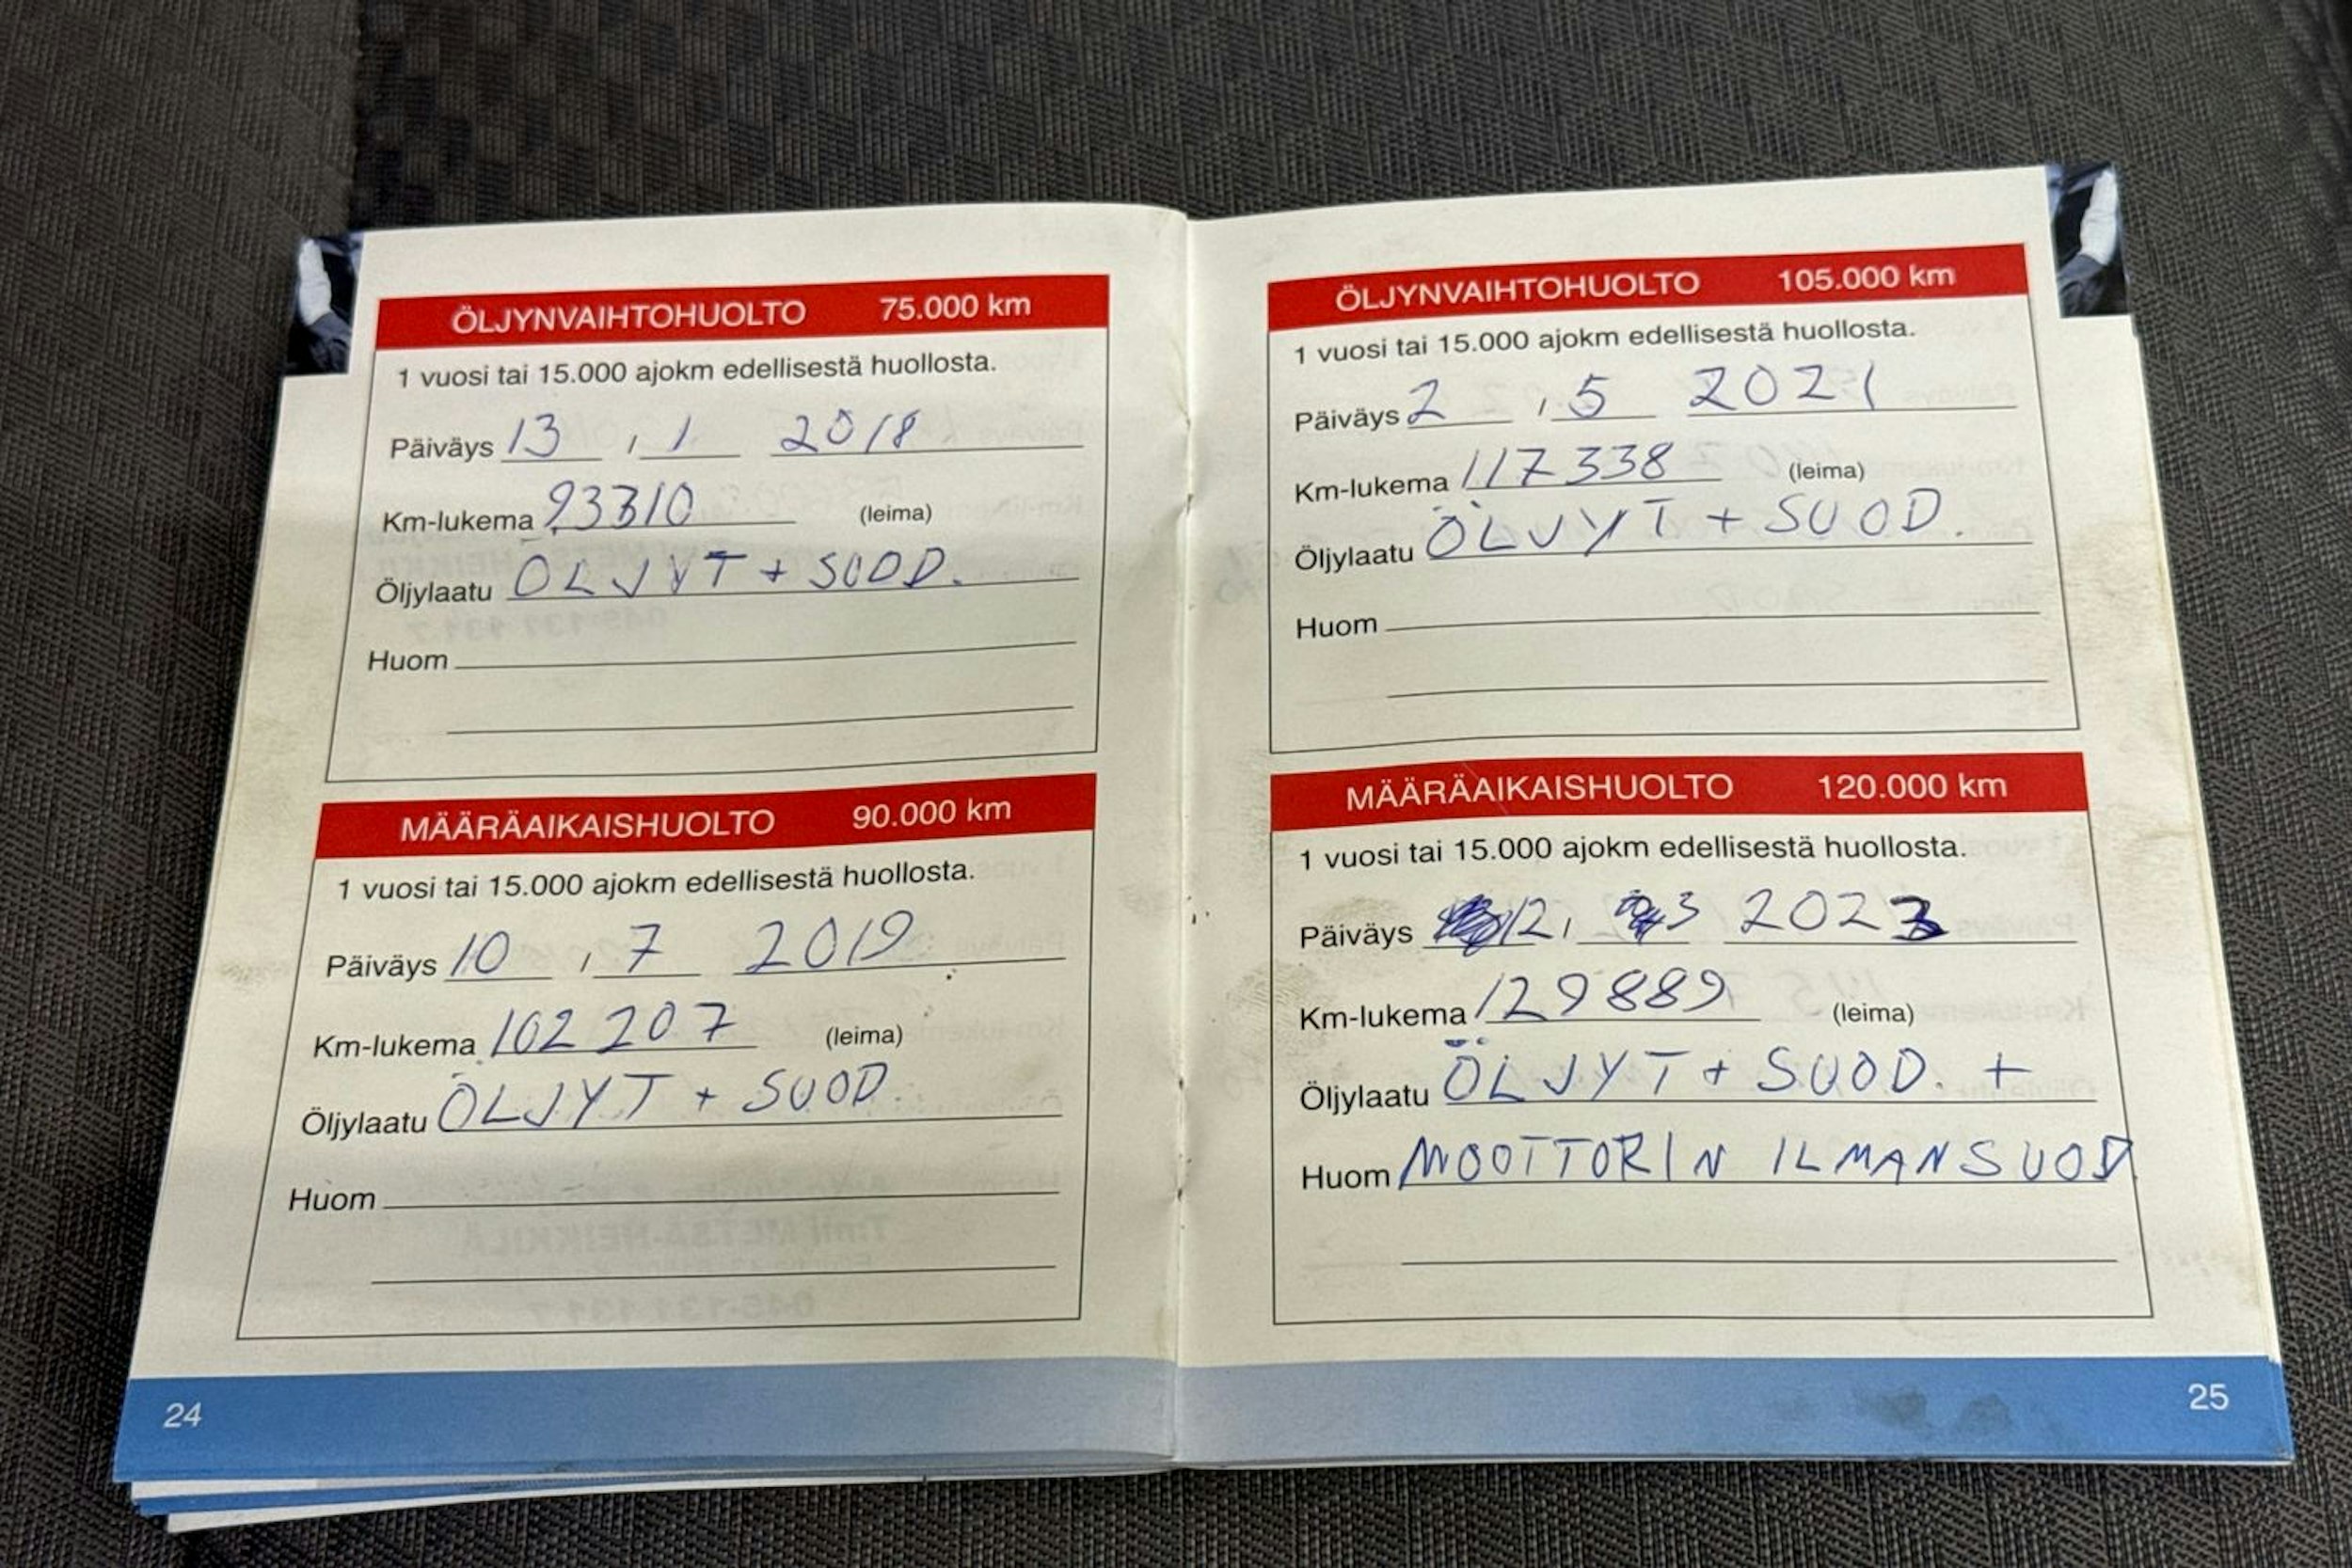 ÖLJYNVAIHTOHUOLTO 75.000 km
1 vuosi tai 15.000 ajokm edellisestä huollosta.
Päiväys 13 , 1 2018
Km-lukema 93310 (leima)
Öljylaatu ÖLJYT + SUOD.
Huom
MÄÄRÄAIKAISHUOLTO 90.000 km
1 vuosi tai 15.000 ajokm edellisestä huollosta.
Päiväys 10 , 7 2019
Km-lukema 102 207 (leima)
Öljylaatu ÖLJYT + SUOD.
Huom
24
ÖLJYNVAIHTOHUOLTO 105.000 km
1 vuosi tai 15.000 ajokm edellisestä huollosta.
Päiväys 2 , 5 2021
Km-lukema 117338 (leima)
Öljylaatu ÖLJYT + SUOD.
Huom
MÄÄRÄAIKAISHUOLTO 120.000 km
1 vuosi tai 15.000 ajokm edellisestä huollosta.
Päiväys 12, 3 2023
Km-lukema 129889 (leima)
Öljylaatu ÖLJYT + SUOD. +
Huom MOOTTORIN ILMANSUOD
25